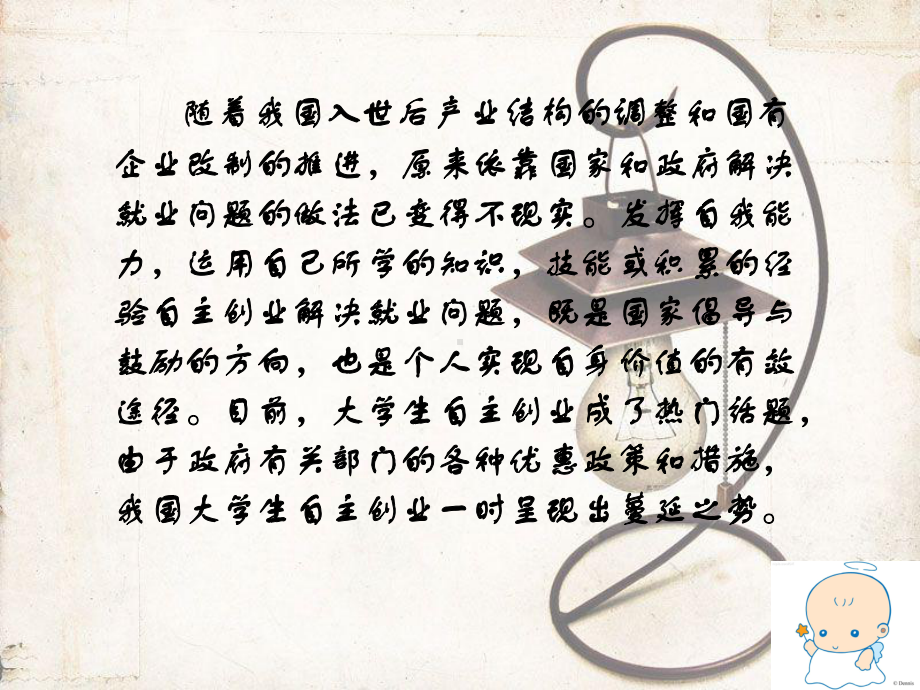 随着我国入世后产业结构的调整和国有
企业改制的推进，原来依靠国家和政府解决
就业问题的做法已变得不现实。发挥自我能
力，运用自己所学的知识，技能或积累的经
验自主创业解决就业问题，既是国家倡导与
鼓励的方向，也是个人实现自身价值的有效
途径。目前，大学生自主创业成了热门话题，
由于政府有关部门的各种优惠政策和措施，
我国大学生自主创业一时呈现出蔓延之势。
© Dennis